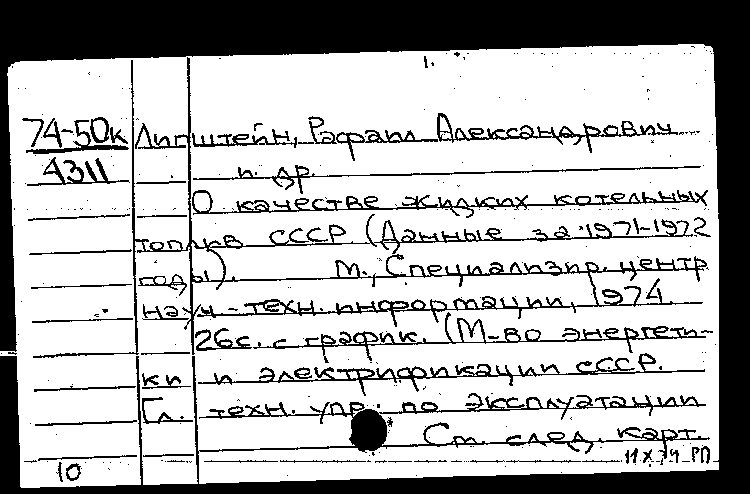 1.
74-50к Липштейн, Рафаил Александрович
4311 и др.
О качестве жидких котельных
топлив СССР. (Данные за 1971-1972
годы). М., Специализир. центр
науч.-техн. информации, 1974.
26с. с график. (М-во энергети-
ки и электрификации СССР.
Гл. техн. упр. по эксплуатации
Ст. след. карт.
10 11 X 74 РП